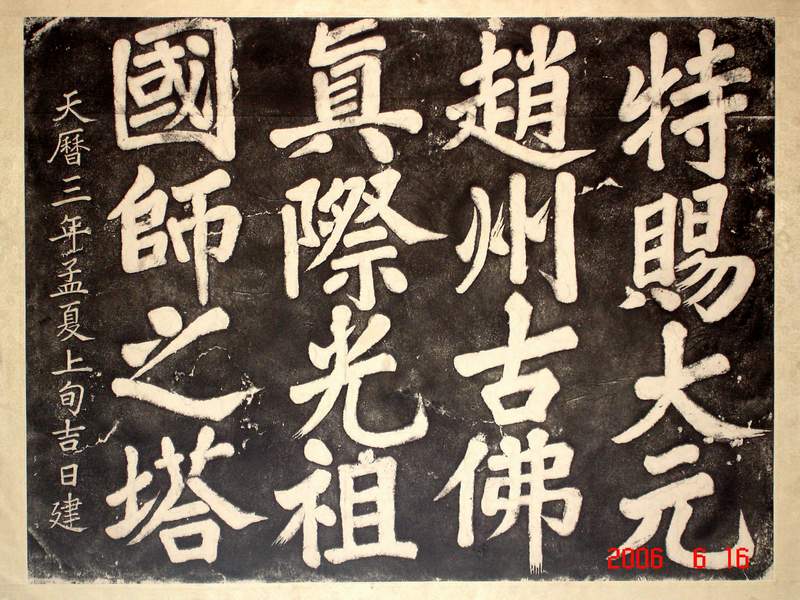 特賜大元
趙州古佛
真際光祖
國師之塔
天曆三年孟夏上旬吉日建
2006 6 16